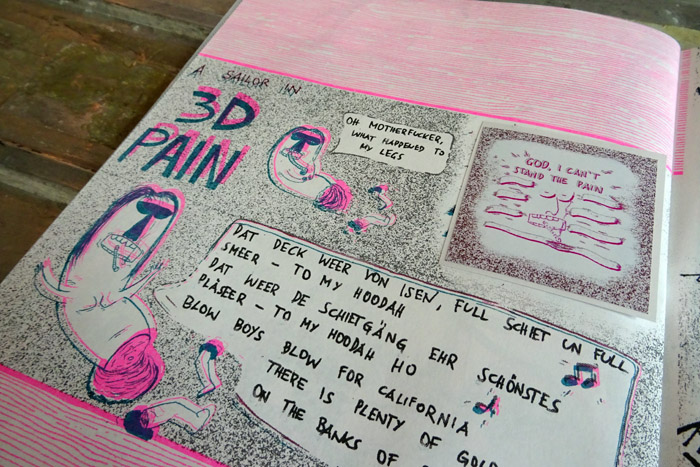 A SAILOR IN
3D
PAIN
OH MOTHERFUCKER,
WHAT HAPPENED TO
MY LEGS
GOD, I CAN'T
STAND THE PAIN
DAT DECK WEER VON ISEN, FULL SCHIET UN FULL
SMEER – TO MY HOODAH
DAT WEER DE SCHIETGÄNG EHR SCHÖNSTES
PLÄSEER – TO MY HOODAH HO
BLOW BOYS BLOW FOR CALIFORNIA
THERE IS PLENTY OF GOLD
ON THE BANKS OF